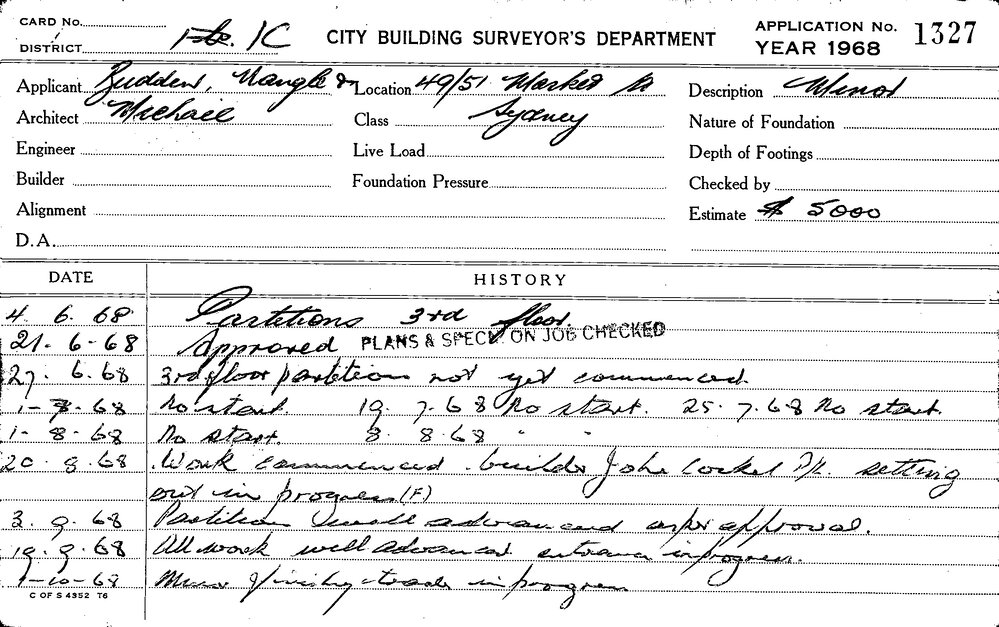 CARD No.
DISTRICT 1C
CITY BUILDING SURVEYOR'S DEPARTMENT
APPLICATION No. 1327
YEAR 1968
Applicant Budden, Nangle &
Architect Michael
Engineer
Builder
Alignment
D.A.
Location 49/51 Market St
Class Sydney
Live Load
Foundation Pressure
Description Minor
Nature of Foundation
Depth of Footings
Checked by
Estimate $ 5000
DATE HISTORY
4. 6. 68 Partitions 3rd floor.
21. 6-68 Approved PLANS & SPECN ON JOB CHECKED
27. 6.68 3rd floor partitions not yet commenced.
1-7-68 No start. 19. 7.68 No start. 25.7.68 No start.
1-8-68 No start. 8. 8.68 " "
20.8.68 Work commenced. builder John P/L. setting
out in progress (F)
3. 9. 68 Partition well advanced as per approval.
19.9.68 All work well advanced entrance in progress.
1-10-68 Minor finishing trades in progress
C OF S 4352 T6